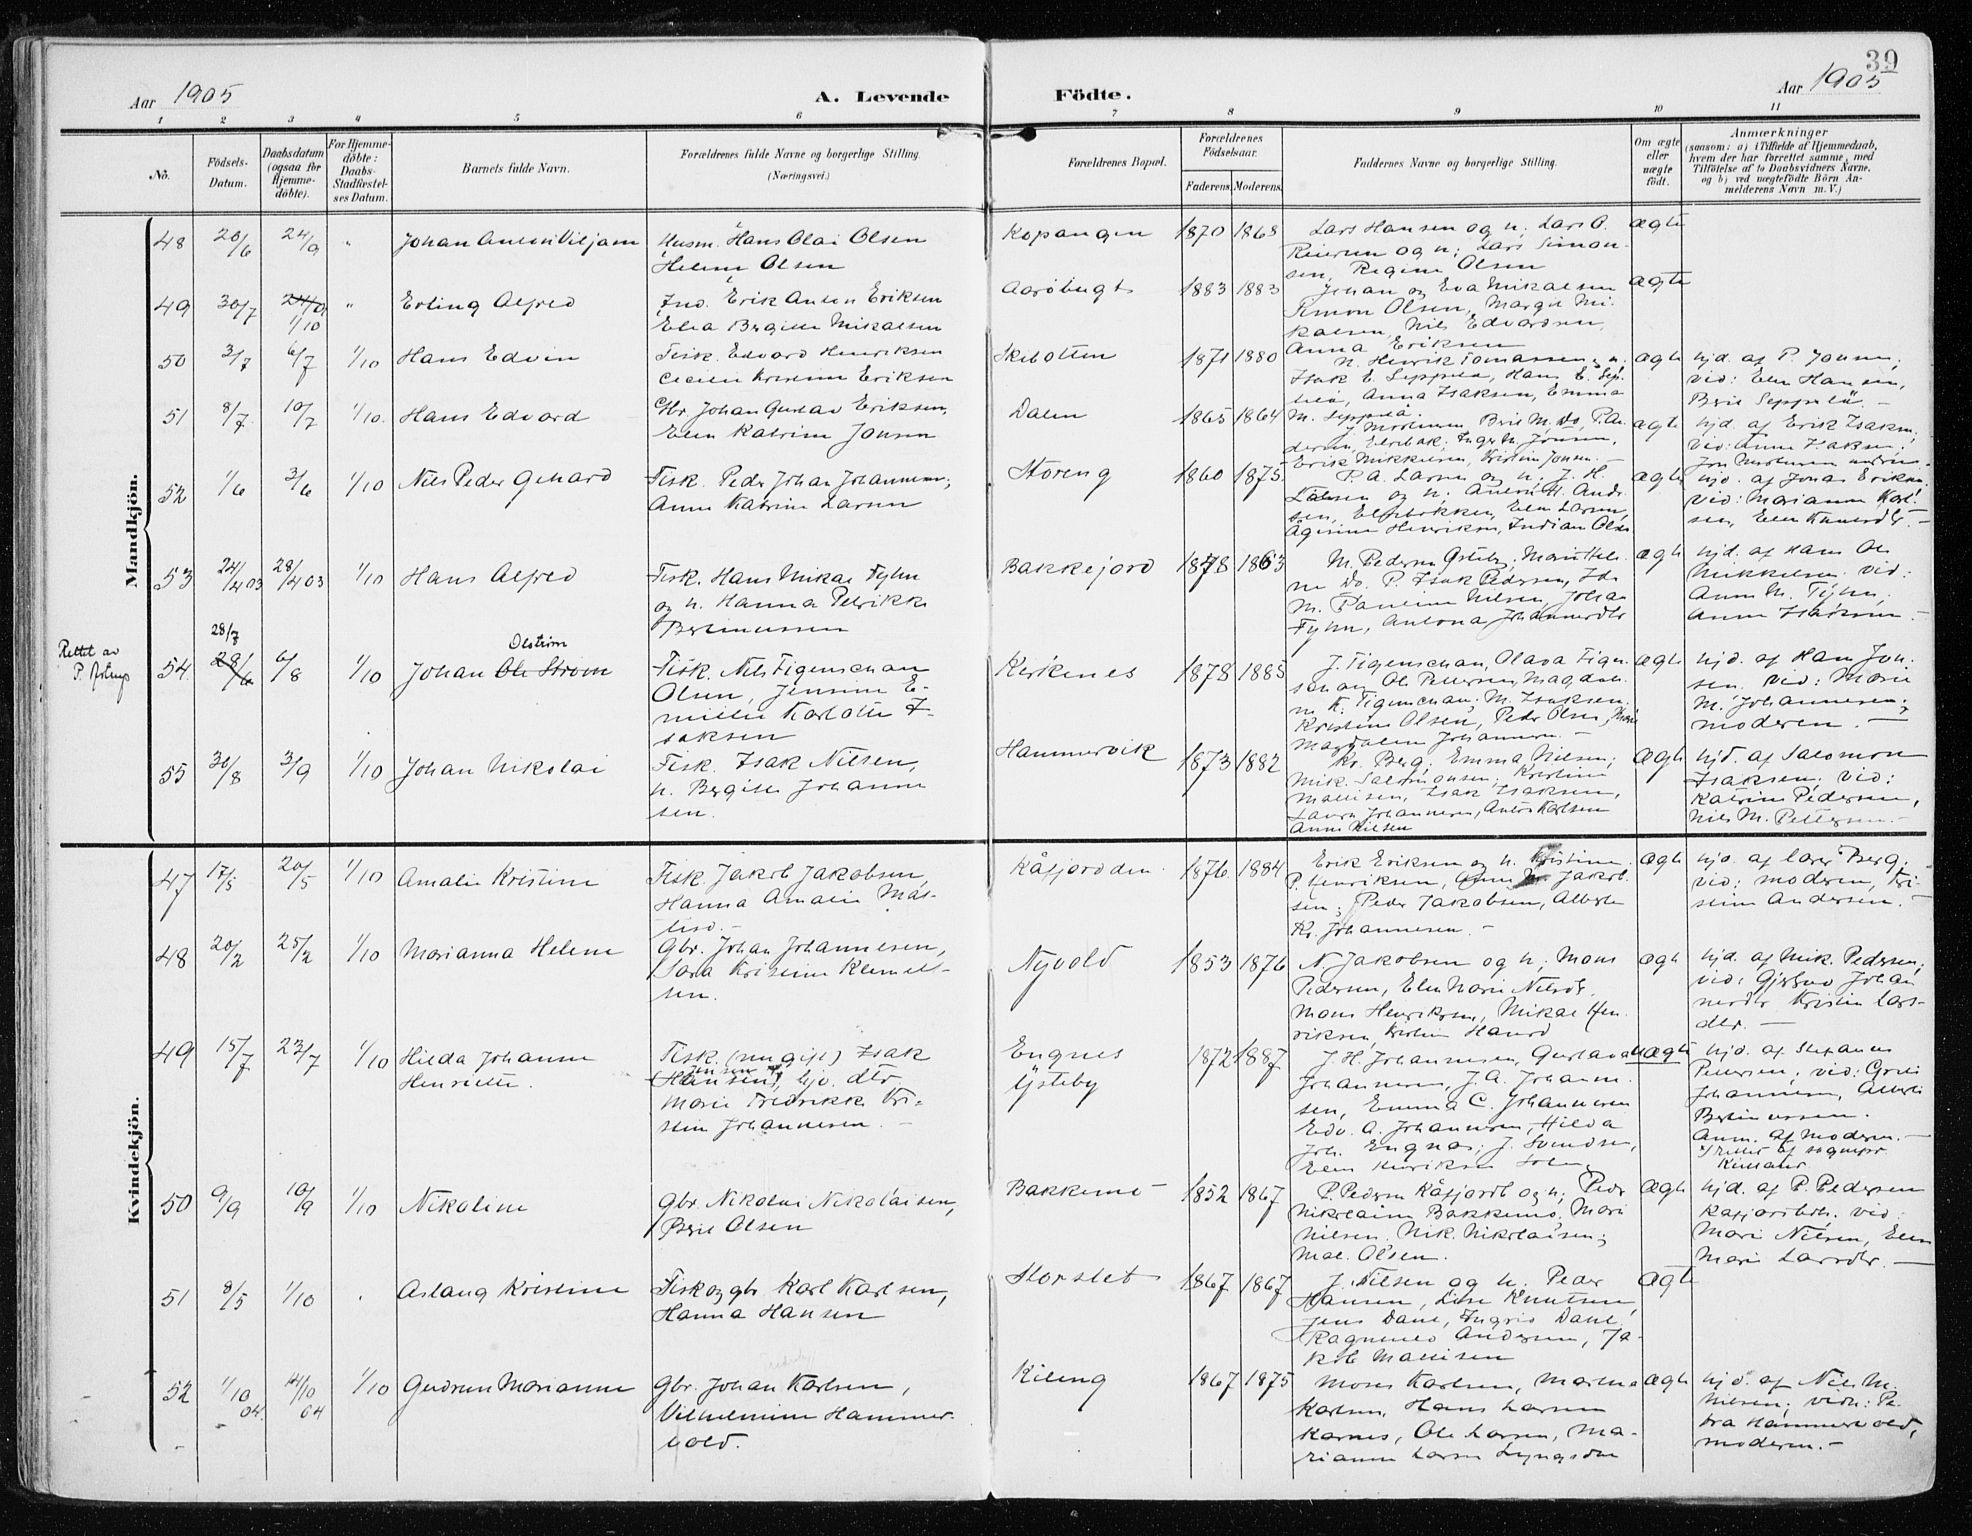 39
Aar 1905
A. Levende Födte.
Aar 1905
1 2 3 4 5 6 7 8 9 10 11
No.
Födsels-Datum.
Daabsdatum (ogsaa for Hjemme-döbte).
For Hjemme-döbte: Daabs-Stadfæstel-ses Datum.
Barnets fulde Navn.
Forældrenes fulde Navne og borgerlige Stilling.
(Næringsvei.)
Forældrenes Bopæl.
Forældrenes Födselsaar.
Faderens. Moderens.
Faddernes Navne og borgerlige Stilling.
Om ægte eller uægte födt.
Anmærkninger
(saasom: a) i Tilfælde af Hjemmedaab,
hvem der har forrettet samme, med
Tilföielse af to Daabsvidners Navne,
og b) ved uægtefödte Börn An-
melderens Navn m. V.)
Mandkjön.
48 20/6 24/9 " Johan Anton Viljam
Husm. Hans Olai Olsen
Helene Olsen
Kopangen 1870 1868
Lars Hansen og h; Lars O.
Reiersen og h; Lars Simon-
sen, Regine Olsen
ægte
49 30/7 24/9 1/10 " Erling Alfred
Ind. Erik Anton Eriksen
Elea Bergitte Mikalsen
Aaröbugt 1883 1883
Johan og Eva Mikalsen
Simon Olsen, Margit Mi-
kalsen, Nils Edvardsen,
Anna Eriksen
ægte
50 3/7 6/7 1/10 Hans Edvin
Fisk. Edvard Henriksen
Cecilie Kristine Eriksen
Skibotten 1871 1880
H. Henrik Tomassen og h.
Isak E. Seppälä, Hans E. Sep-
pälä, Anna Isaksen, Emma
M. Seppälä.
ægte
hjd. af P. Jonsen;
vid: Elen Hansen,
Berit Seppälä. -
51 8/7 10/7 1/10 Hans Edvard
Gbr. Johan Gustav Eriksen,
Elen Katrine Jonsen
Dalen 1865 1864
Erik Mikkelsen, Kristine Jonsen. -
ægte
hjd. af Erik Isaksen,
vid: Anna Isaksen,
52 1/6 3/6 1/10 Nils Peder Gerhard
Fisk. Peder Johan Johannesen,
Anna Katrine Larsen
Storeng 1860 1875
P. A. Larsen og h; J. H.
Larsen og h; Anton H. Andr.
sen, Elvebakken, Elen Larsen,
Ågesine Henriksen, Indian Olsen
ægte
hjd. af Jonas Eriksen.
vid: Marianna Karl-
sen, Elen Knutsdtr. -
53 24/4 03 28/4 03 1/10 Hans Alfred
Fisk. Hans Mikal Fyhn
og h. Hanna Petrikke
Bertinussen
Bakkejord 1878 1863
M. Pedersen Østeby, Marie Hele-
ne Do. P. Isak Pedersen, Ida
M. Pauline Nilsen, Johan
Fyhn, Antona Johannesdtr
ægte
hjd. af Hans Ol.
Mikkelsen. vid:
Anna M. Fyhn,
Anna Isaksen -
Rettet av
P. Astrup
54 28/7 28/6 6/8 1/10 Johan Ole Strøm
Olstrøm
Fisk. Nils Figenschau
Olsen, Jensine E-
milie Karlotte I-
saksen
Kirkenes 1878 1885
J. Figenschau, Olava Figen-
schau, Ole Pettersen, Magdale-
ne K. Figenschau; M. Isaksen,
Kristine Olsen, Peder Olsen, Marie
Magdalene Johannesen. -
ægte
hjd. af Hans Jon-
sen. vid: Marie
M. Johannesen,
moderen. -
55 30/8 3/9 1/10 Johan Nikolai
Fisk. Isak Nilsen,
h. Bergitte Johanne
sen.
Hammervik 1873 1882
Kr. Berg; Emma Nilsen;
Mik. Salomonsen; Kristine
Mathisen, Isak Isaksen,
Laura Johannesen, Anton Karlsen
Anna Nilsen
ægte
hjd. af Salomon
Isaksen. vid:
Katrine Pedersen,
Nils M. Pettersen. -
Kvindekjön.
47 17/5 20/5 1/10 Amalie Kristine
Fisk Jakob Jakobsen,
Hanna Amalie Mós-
lund. -
Kåfjordden. 1876 1884
Erik Eriksen og h. Kristine
P. Henriksen, Anna M. Jakob-
sen; Peder Jakobsen, Alberte
Kr. Johannesen. -
ægte
hjd. af lærer Berg.
vid: moderen, Kri-
stine Andersen. -
48 20/2 25/2 1/10 Marianna Helene
Gbr. Johan Johannesen,
Sara Kristine Klemet-
sen.
Nyvold 1853 1876
N. Jakobsen og h; Mons
Pedersen, Elen Marie Nilsdtr.
Mons Henriksen, Mikal Hen
riksen, Kirstin Hansd
ægte
hjd. af Mik. Pedersen;
vid: Gjertrud Johan
nesdtr Kristine Lars-
dtr. -
49 15/7 23/7 1/10 Hilda Johanne
Henriette.
Fisk. (ungift) Isak
Hansen, Jensen og hjv. dtr
Marie Fredrikke Kri-
stine Johannesen. -
Engnes
Ysteby
1872 1887
J. H. Johannesen, Gustava
Johannesen, J. A. Johanne-
sen, Emma C. Johannesen
Edv. A. Johannesen, Hilda
Joh. Engnes; J. Svendsen,
Elen Henriksen
uægte
hjd. af Stefanus
Pettersen, vid: Grete
Johannesen, Alberte
Bertinussen.
Anm. af Moderen. -
50 9/9 10/9 1/10 Nikoline
Gbr. Nikolai Nikolaisen,
Berit Olsen
Bakkemo 1852 1867
P. Pedersen Kåfjordb og h; Peder
Nikolaisen Bakkemo, Mari
Nilsen, Nik. Nikolaisen;
Mal. Olsen.
ægte
hjd. af P. Pedersen
Kåfjordbtn. vid
Mari Nilsen, Elen
Mari Larsdtr. -
51 8/5 1/10 " Aslaug Kristine
Fisk og gbr Karl Karlsen,
Hanna Hansen
Storslet 1867 1867
J. Nilsen og h. Peder
Hansen, Lise Knutsen,
Jens Dahl, Ingrid Dahl,
Ragnhild Andersen, Ja-
kob Mathisen
ægte
52 1/10 04 14/10 04 1/10 Gudrun Marianne
Gbr. Johan Karlsen,
Vilhelmine Hammer-
vold.
Kileng 1867 1875
Moses Karlsen, Martha
Karlsen, Hans Larsen
Karnes, Ole Larsen, Ma-
rianne Larsen Lyngsdn
ægte
hjd. af Nils M.
Nilsen; vidn: Pe-
tra Hammervold,
moderen. -